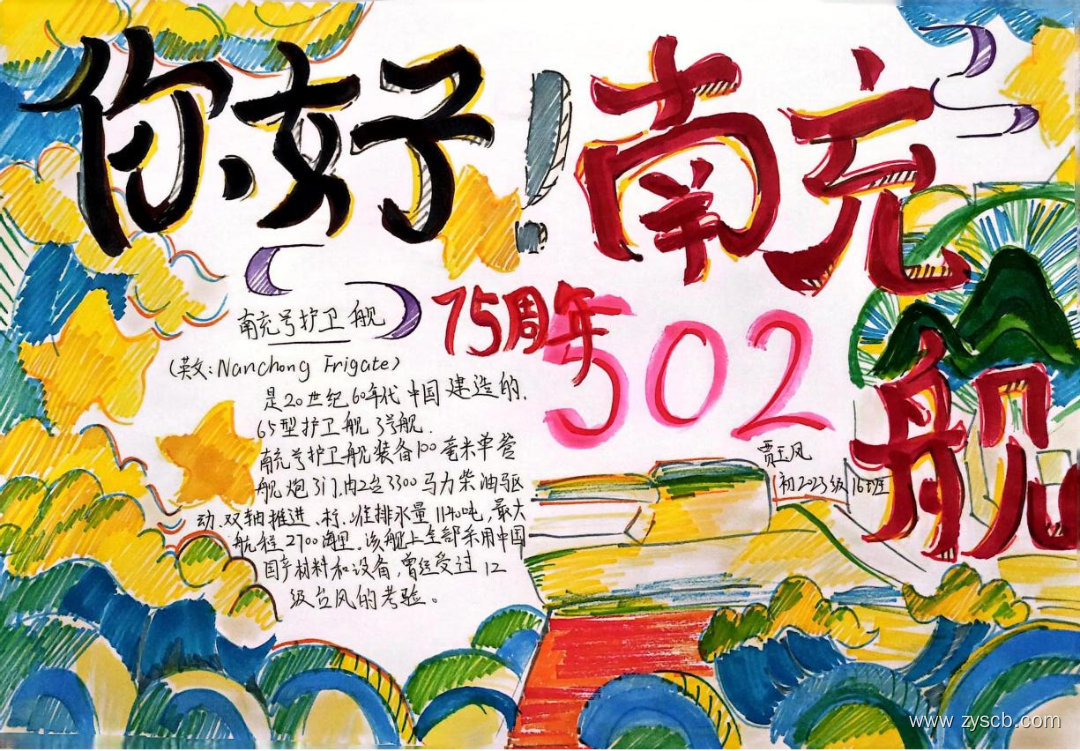 你好！南充舰
75周年
502
南充号护卫舰
(英文：Nanchong Frigate)
是20世纪60年代中国建造的
65型护卫舰3号舰.
南充号护卫舰装备100毫米单管
舰炮3门.内2台3300马力柴油驱
动、双轴推进、标准排水量1140吨,最大
航程2700海里.该舰上全部采用中国
国产材料和设备,曾经受过12
级台风的考验。
初2023级16班
www.zyscb.com